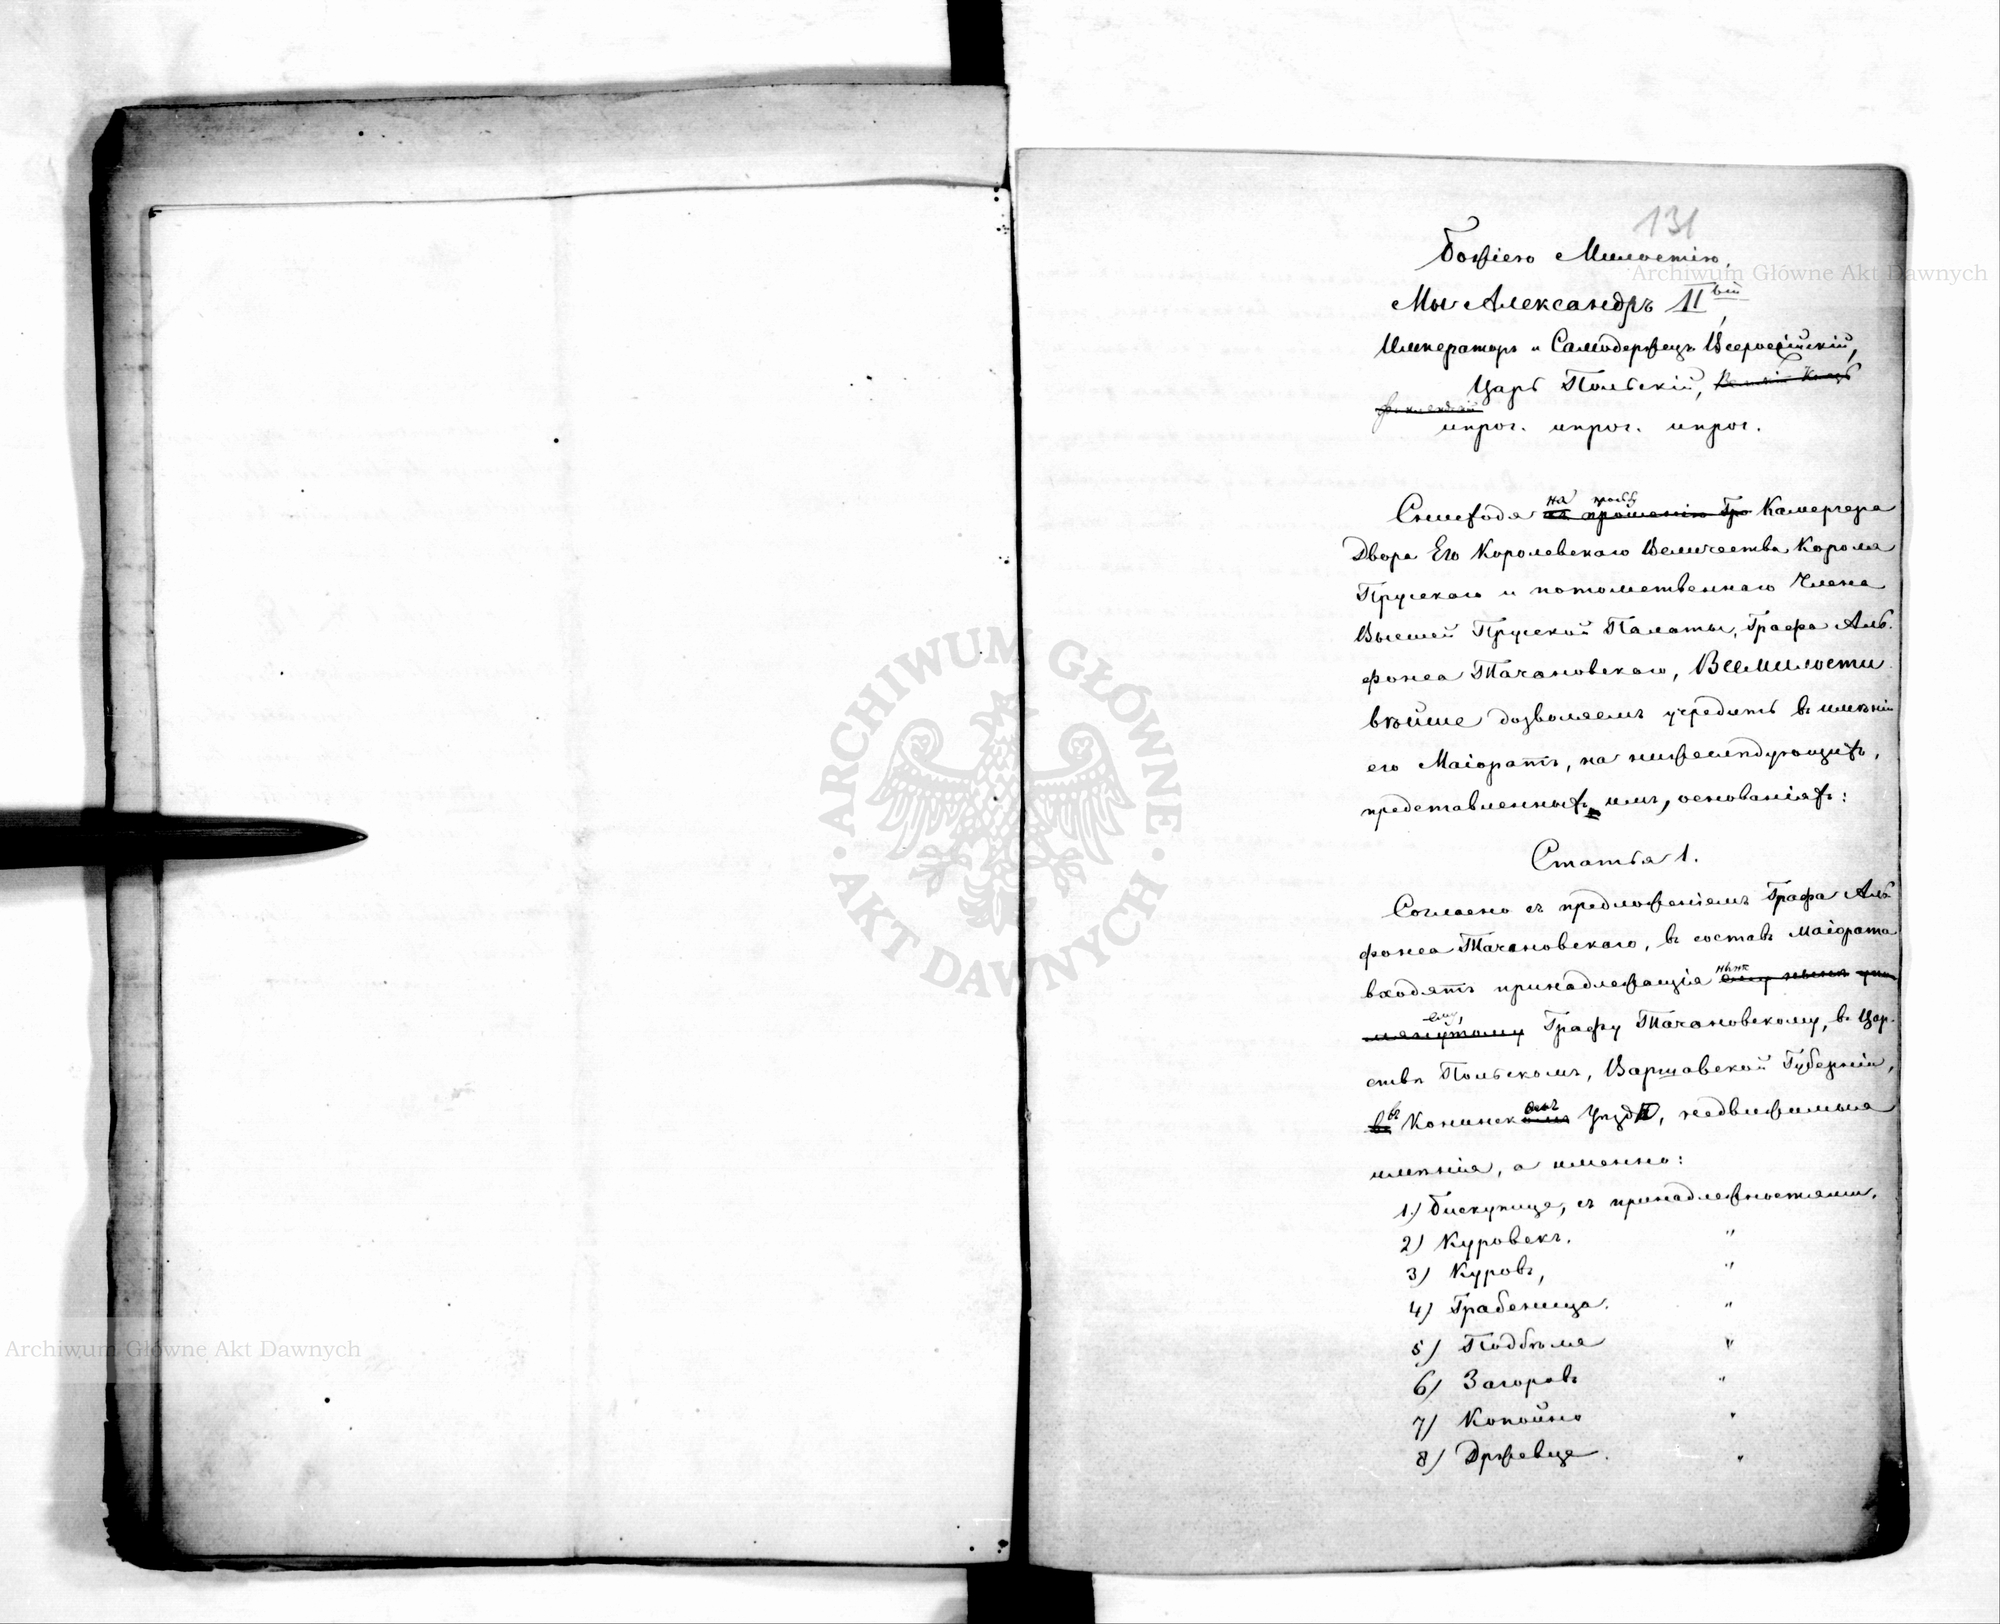 131
Божіею Милостію,
Мы Александръ IIый,
Императоръ и Самодержецъ Всероссійскій,
Царь Польскій, Великій Князь
Финляндскій
и проч. и проч. и проч.
Снисходя на просьбу Камергера
Двора Его Королевскаго Величества Короля
Прускаго и потомственнаго Члена
Высшей Пруской Палаты, Графа Аль-
фонса Тачановскаго, Всемилости
вѣйше дозволяемъ учредить въ имѣніи
его Маіоратъ, на нижеслѣдующихъ,
представленныхъ имъ, основаніяхъ:
Статья 1.
Согласно съ предложеніемъ Графа Аль-
фонса Тачановскаго, въ составъ Маіората
входятъ принадлежащія нынѣ ему ныне упо
мянутому ему, Графу Тачановскому, въ Цар-
ствѣ Польскомъ, Варшавской Губерніи,
въ Конинскомъ Уѣздѣ, недвижимыя
имѣнія, а именно:
1) Бискупице, съ принадлежностями.
2) Куровекъ. "
3) Куровъ, "
4) Грабеница. "
5) Поддбѣля "
6) Загоровъ "
7) Копойно "
8) Држевце. "
Archiwum Główne Akt Dawnych
ARCHIWUM GŁÓWNE
AKT DAWNYCH
Archiwum Główne Akt Dawnych